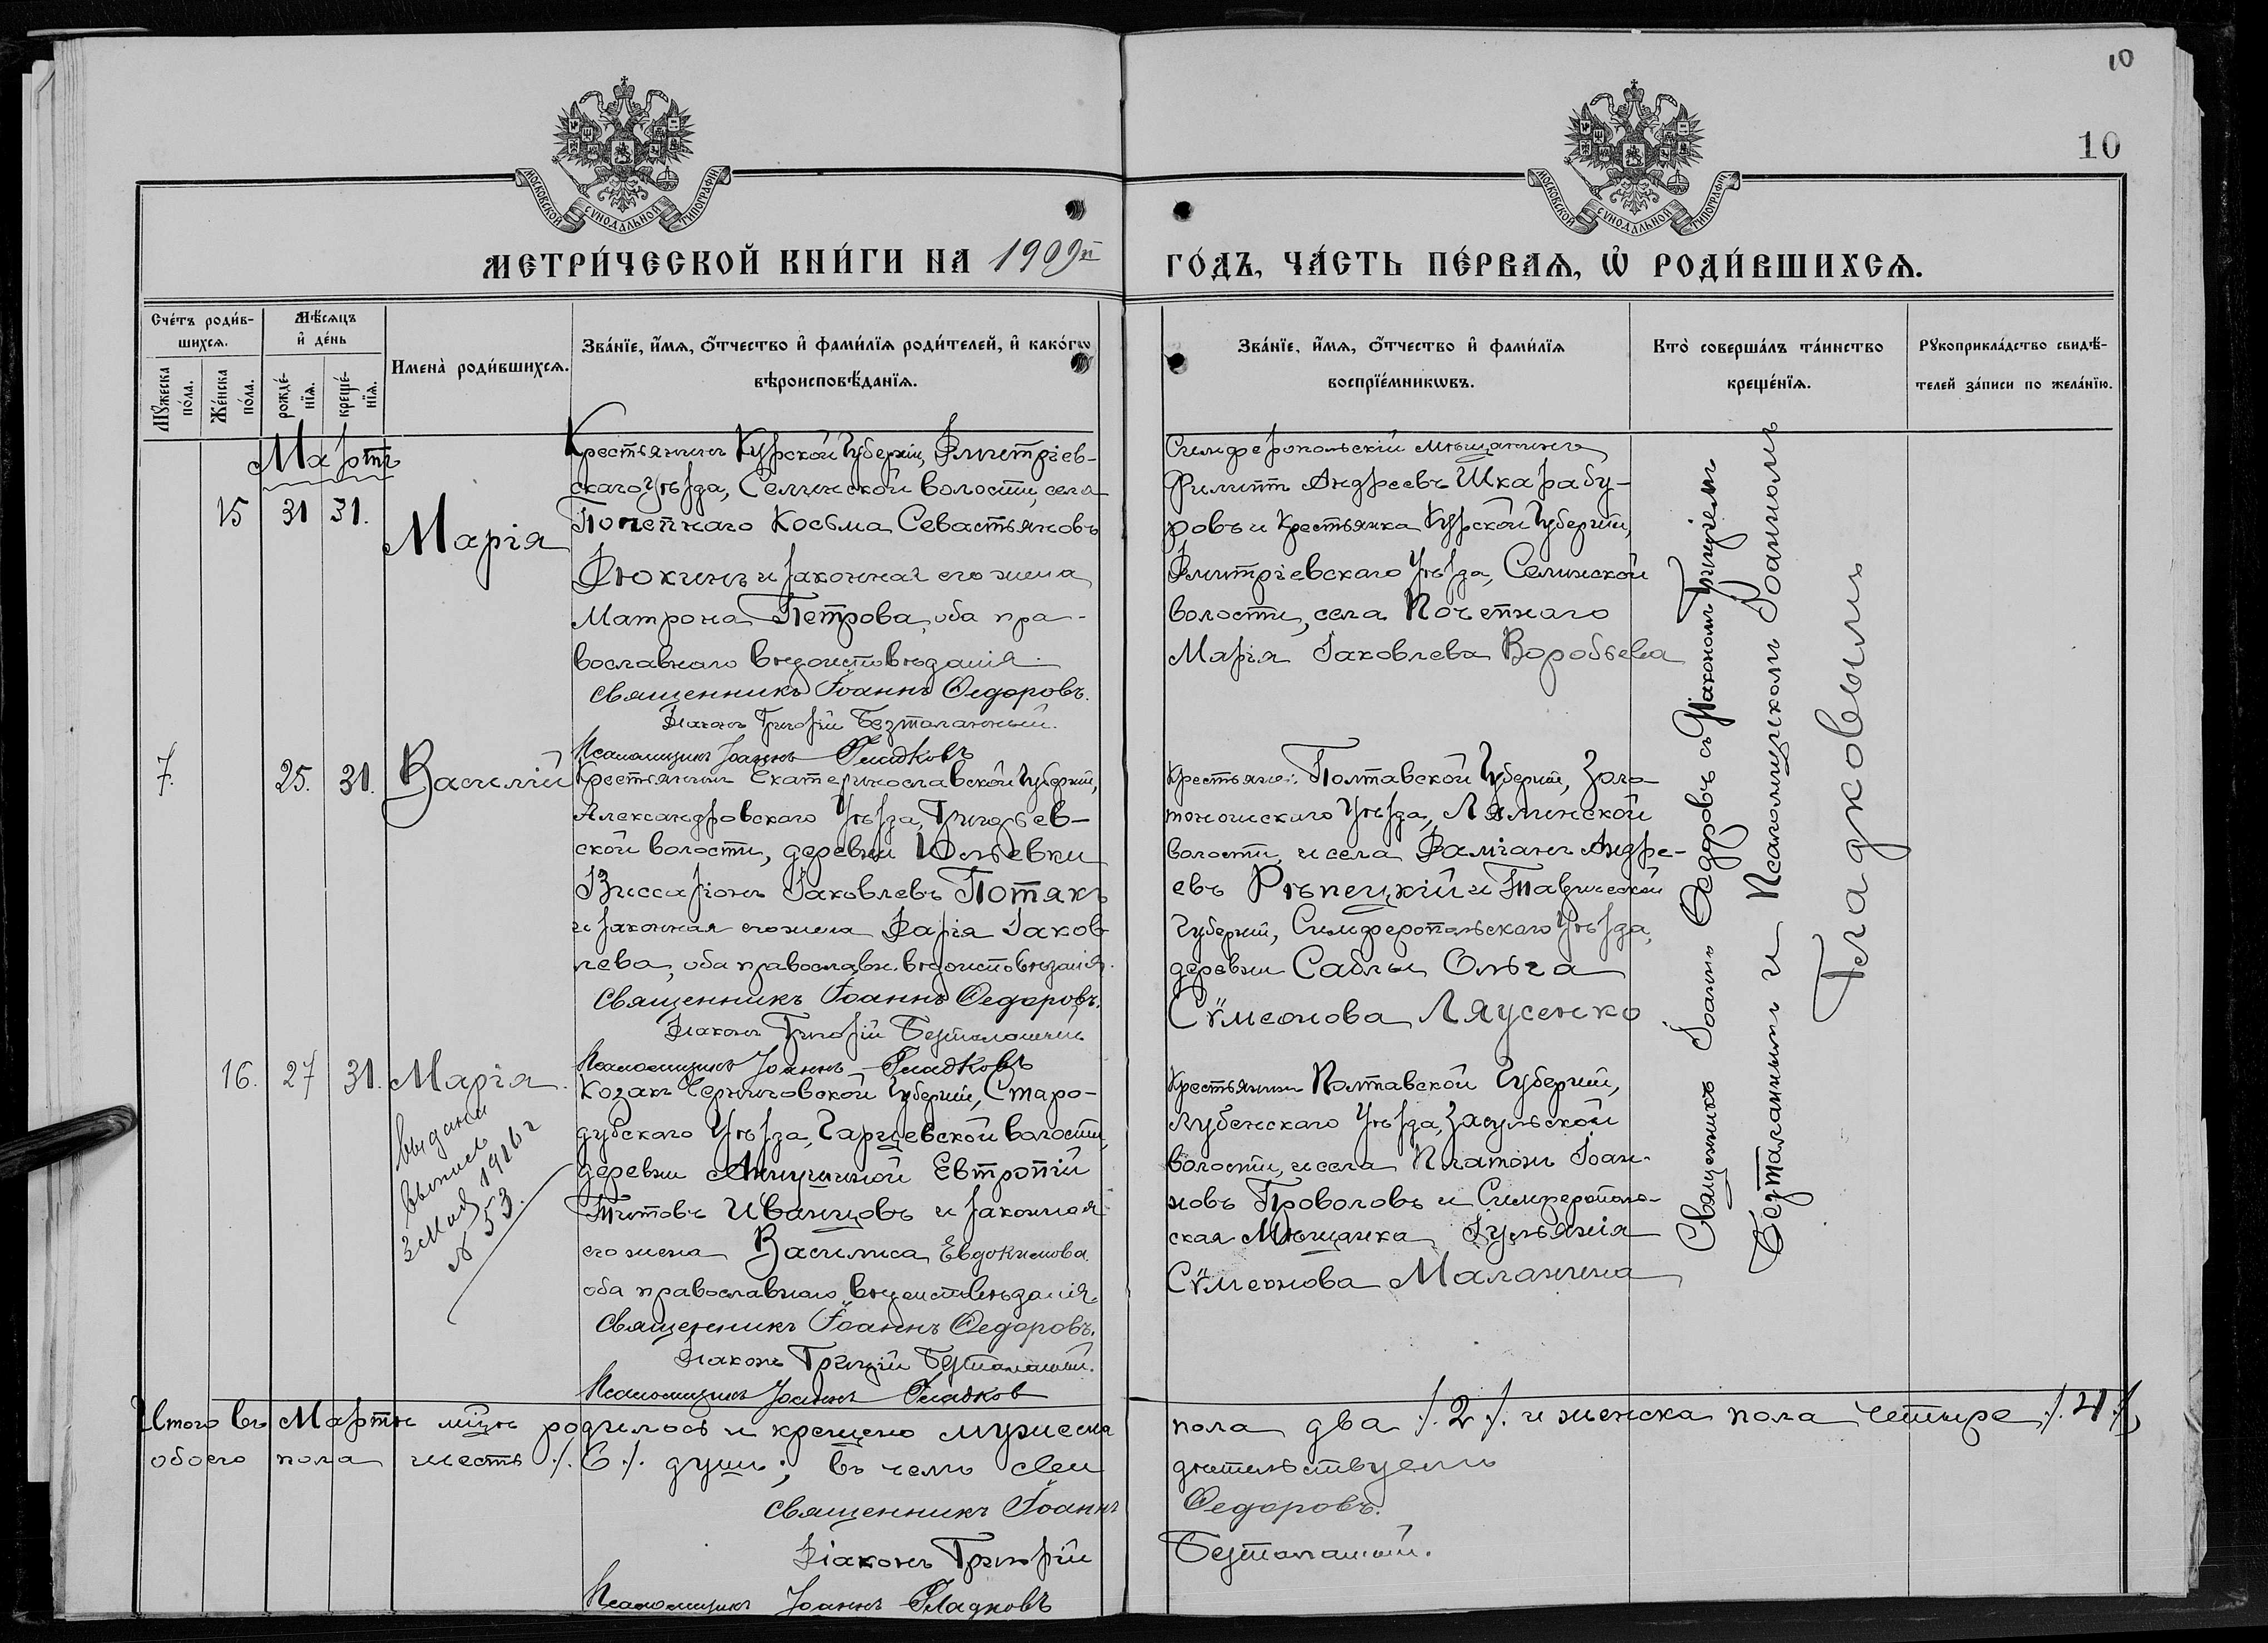 10
10
МОСКОВСКОЙ СѴНОДАЛЬНОЙ ТИПОГРАФІИ
МОСКОВСКОЙ СѴНОДАЛЬНОЙ ТИПОГРАФІИ
МЕТРИ́ЧЕСКОЙ КНИ́ГИ НА 1909й
ГО́ДЪ, ЧА́СТЬ ПЕ́РВАѦ, Ѡ҆ РОДИ́ВШИХСѦ.
Сче́тъ роди́в-
шихсѧ.
Мꙋ́жеска
по́ла.
Же́нска
по́ла.
Мѣ́сѧцъ
и҆ де́нь
рожде́-
нїѧ.
креще́-
нїѧ.
Имена̀ роди́вшихсѧ.
Зва́нїе, и҆́мѧ, ѻ҆́тчество и҆ фами́лїѧ роди́телей, и҆ како́гѡ
вѣроисповѣ́данїѧ.
Зва́нїе, и҆́мѧ, ѻ҆́тчество и҆ фами́лїѧ
воспрїе́мникѡвъ.
Кто̀ соверша́лъ та́инство
креще́нїѧ.
Рꙋкоприкла́дство свидѣ́-
телей за́писи по жела́нїю.
Мартъ
15 31 31.
Марія
Крестьянинъ Курской Губерніи, Дмитріев-
скаго Уѣзда, Селинской волости, села
Почепнаго Косьма Севастьяновъ
Дюкинъ и законная его жена
Матрона Петрова, оба пра-
вославнаго вѣроисповѣданія.
Священникъ Іоаннъ Ѳедоровъ.
Діаконъ Григорій Безталанный.
Псаломщикъ Іоаннъ Гладковъ
Симферопольскій мѣщанинъ
Филиппъ Андреевъ Шкарабу-
ровъ и Крестьянка Курской Губерніи,
Дмитріевскаго Уѣзда, Селинской
волости, села Почепнаго
Марія Іаковлева Воробьева
7. 25. 31. Василій
Крестьянинъ Екатеринославской Губерніи,
Александровскаго Уѣзда, Григорьев-
ской волости, деревни Юльевки
Виссаріонъ Іаковлевъ Потякъ
и законная его жена Дарія Іаков
лева, оба православн. вѣроисповѣданія.
Священникъ Іоаннъ Ѳедоровъ.
Діаконъ Григорій Безталанный
Псаломщикъ Іоаннъ Гладковъ
Крестьяне: Полтавской Губерніи, Золо-
тоношскаго Уѣзда, Лялинской
волости, и села Даміанъ Андре-
евъ Рѣпецкій и Таврической
Губерніи, Симферопольскаго Уѣзда,
деревни Саблы Ольга
Сѵмеонова Ляусенко
16. 27 31. Марія.
выдана
выпись
3 Мая 1926 г
N 53.
Козакъ Черниговской Губерніи, Старо-
дубскаго Уѣзда, Гарцевской волости,
деревни Аннушиной Евтропій
Титовъ Иванцовъ и законная
его жена Василиса Евдокимова
оба православнаго вѣроисповѣданія
Священникъ Іоаннъ Ѳедоровъ.
Діаконъ Григорій Безталанный.
Псаломщикъ Іоаннъ Гладков
Крестьянинъ Полтавской Губерніи,
Лубенскаго Уѣзда, Засульской
волости, и села Платонъ Іоан-
новъ Проволовъ и Симферополь-
ская Мѣщанка Іуліанія
Сѵмеонова Маланина
Священникъ Іоаннъ Ѳедоровъ съ Діакономъ Григоріемъ
Безталаннымъ и Псаломщикомъ Іоанномъ
Гладковымъ
Итого въ Мартѣ м҃цѣ родилось и крещено мужеска пола два /.2/. и женска пола четыре /.4./,
обоего пола шесть /.6./. душъ; въ чемъ сви дѣтельствуемъ
Священникъ Іоаннъ Ѳедоровъ.
Діаконъ Григорій Безталанный.
Псаломщикъ Іоаннъ Гладковъ